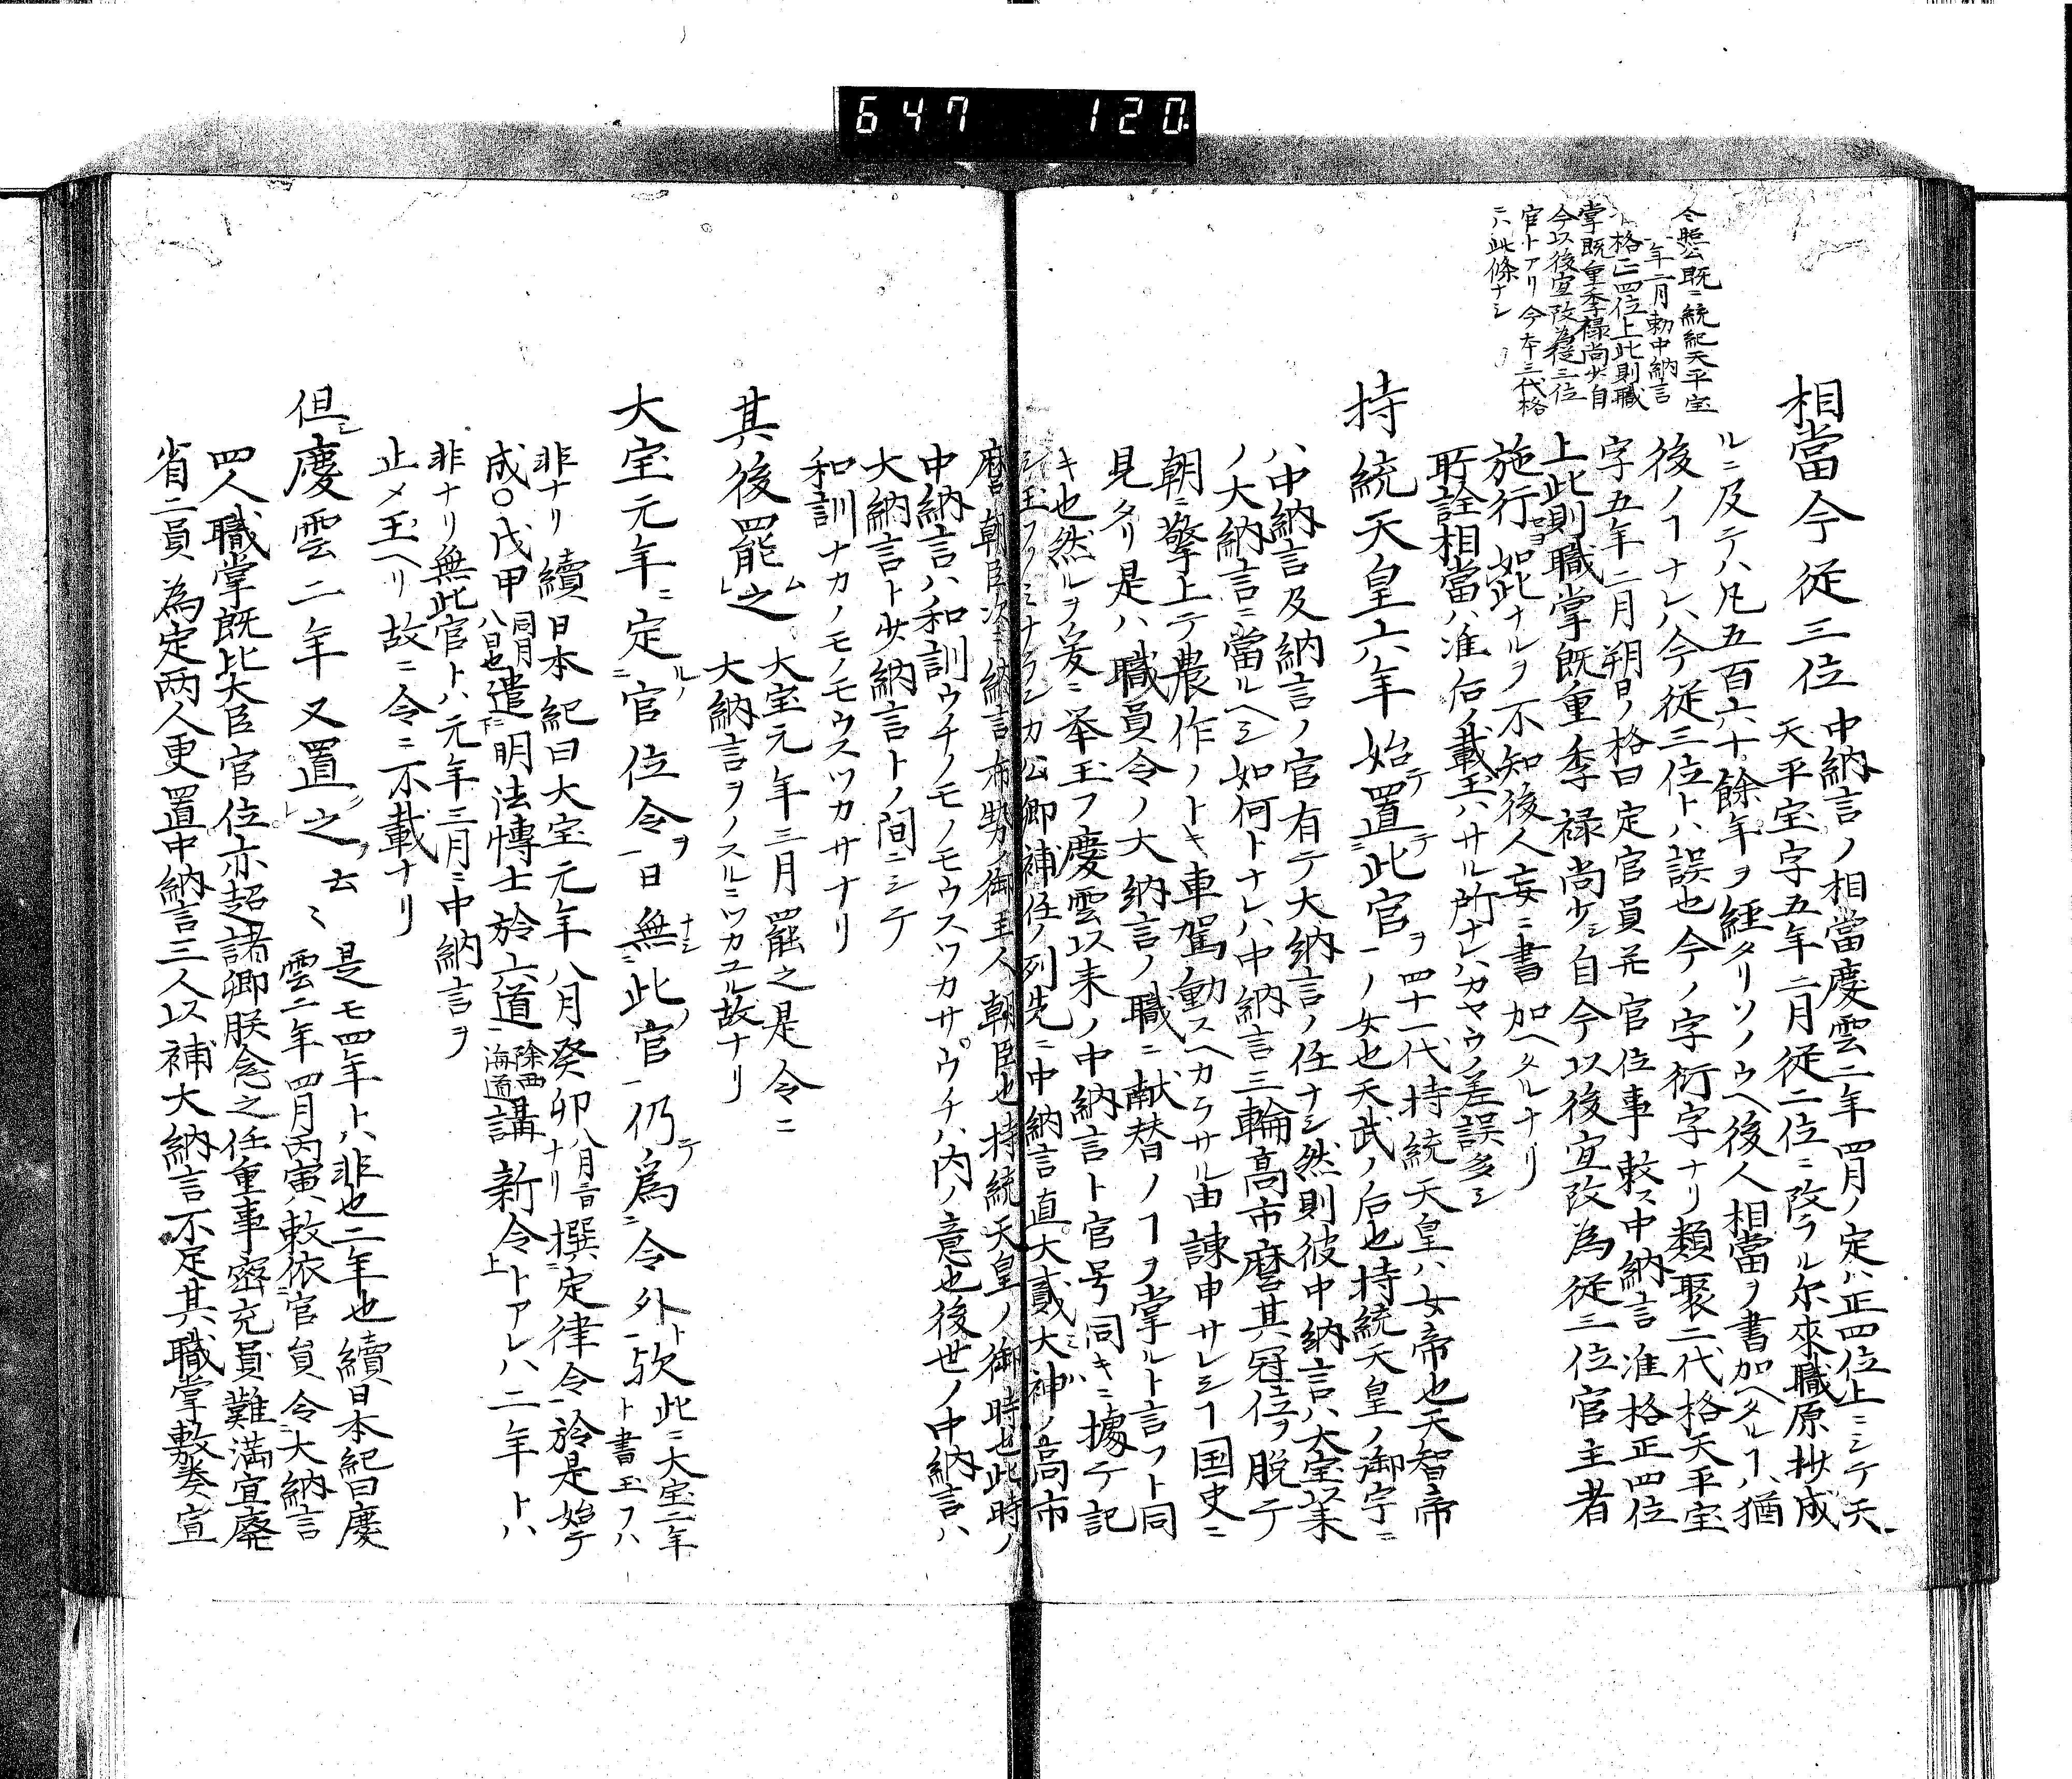 647 120
令照公既ニ続紀天平宝
年二月勅中納言
格正四位上此則職
掌既重季禄尚少自
今以後宜改為従三位
官トアリ今本三代格
ニハ此條ナシ
相當今従三位 中納言ノ相當慶雲二年四月ノ定ハ正四位上ニシテ天
天平宝字五年二月従三位ニ改ラル尓來職原抄成
ルニ及テハ凡五百六十餘年ヲ経タリソノウヘ後人相當ヲ書加ヘタルヿハ猶
後ノヿナレハ今従三位トハ誤也今ノ字衍字ナリ類聚三代格天平宝
字五年二月朔日ノ格曰定官員并官位事敕ス中納言准格正四位
上此則職掌既重季禄尚少シ自今以後宜改為従三位官主者
施行如此ナルヲ不知後人妄ニ書加ヘタルナリ
所詮相當ハ准后ノ載玉ハサル所ナレハカマウノ差誤多シ
持統天皇六年始テ置テ此官ヲ 四十一代持統天皇ハ女帝也天智帝
一ノ女也天武ノ后也持統天皇ノ御宇ニ
ハ中納言及納言ノ官有テ大納言ノ任ナシ然則彼中納言ハ大宝以来
ノ大納言ニ當ルヘシ如何トナレハ中納言三輪高市麿其冠位ヲ脱テ
朝ニ擎上テ農作ノトキ車駕動スヘカラサル由諫申サレシヿ国史ニ
見タリ是ハ職員令ノ大納言ノ職ニ献替ノヿヲ掌ルト言フト同
キ也然ルヲ爰ニ举玉フ慶雲以来ノ中納言ト官号同キニ據テ記
シ玉フノミナラシカ公卿補任ノ列先ニ中納言直大貳大神ノ高市
麿朝臣次ニ納言布勢ノ御主人朝臣也持統天皇ノ御時也此時ノ
中納言ハ和訓ウチノモノモウスツカサウチハ内ノ意也後世ノ中納言ハ
大納言ト少納言トノ間ニシテ
和訓ナカノモノモウスツカサナリ
其後罷之ム 大宝元年三月罷之是令ニ
大納言ヲノスルニツカユル故ナリ
大宝元年ニ定ルノ官位令ヲ一日無ナシ此ノ官一仍テ為ニ令外ト一歟 此ニ大宝二年
ト書玉フハ
非ナリ續日本紀曰大宝元年八月癸卯八月三日ナリ撰定律令一於是始テ
成〇戊申同月八日也遣明法博士於六道除西海道講新令上トアレハ二年トハ
非ナリ無此官トハ元年三月ニ中納言ヲ
止メ玉ヘリ故ニ令ニ不載ナリ
但シ慶雲二年又置之ヲ云〻 是モ四年トハ非也二年也續日本紀曰慶
雲二年四月丙寅敕依官員令大納言
四人職掌既比大臣官位亦超諸卿朕念之任重事密充員難満宜廃
省二員為定両人更置中納言三人以補大納言不足其職掌敷奏宣